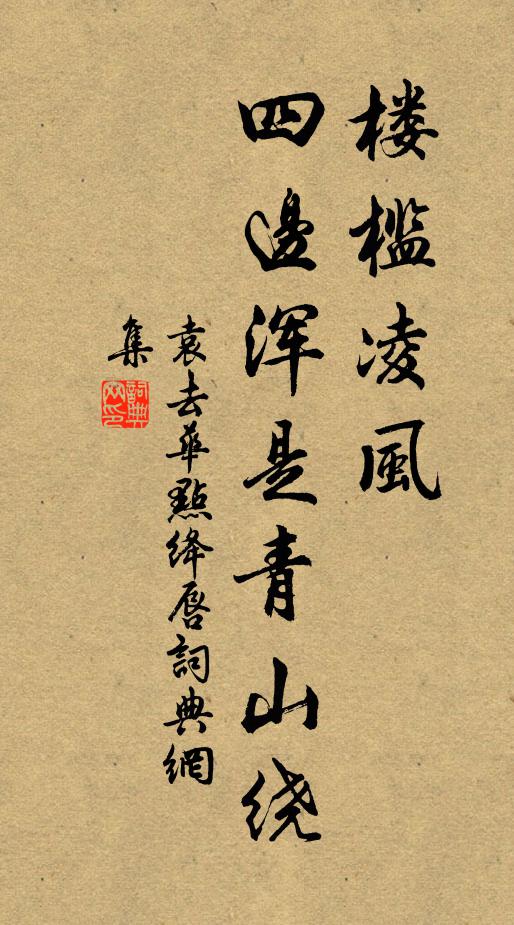 楼槛凌風
四邊浑是青山绕
袁去華點绛唇詞典網
集
詞典網印